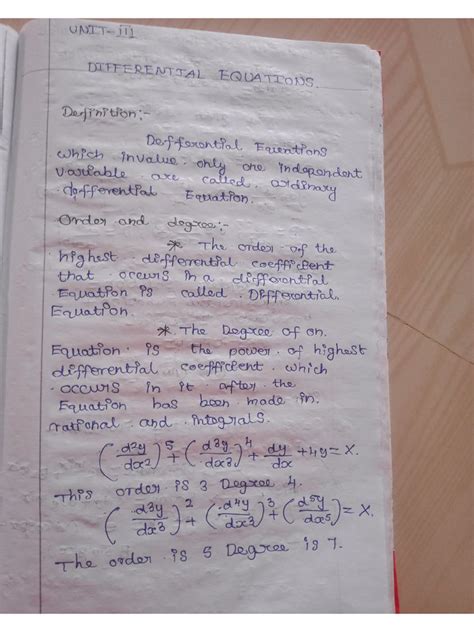 UNIT-III
DIFFERENTIAL EQUATIONS.
Definition:-
Defferential Equentions
which invalue only one independent
variable are called ordinary
defferential Equation.
Order and degree:-
* The order of the
highest differential coefficient
that occurs in a differential
Equation is called Differential.
Equation
* The Degree of on.
Equation is the power of highest
differential coefficient which
occurs in it after the
Equation has been made in.
rational and integrals.
(d²y/dx²)⁵+(d³y/dx³)⁴+dy/dx+4y=X.
This order is 3 Degree 4.
(d³y/dx³)²+(d⁴y/dx³)³+(d⁵y/dx⁵)=X.
The order is 5 Degree is 1.